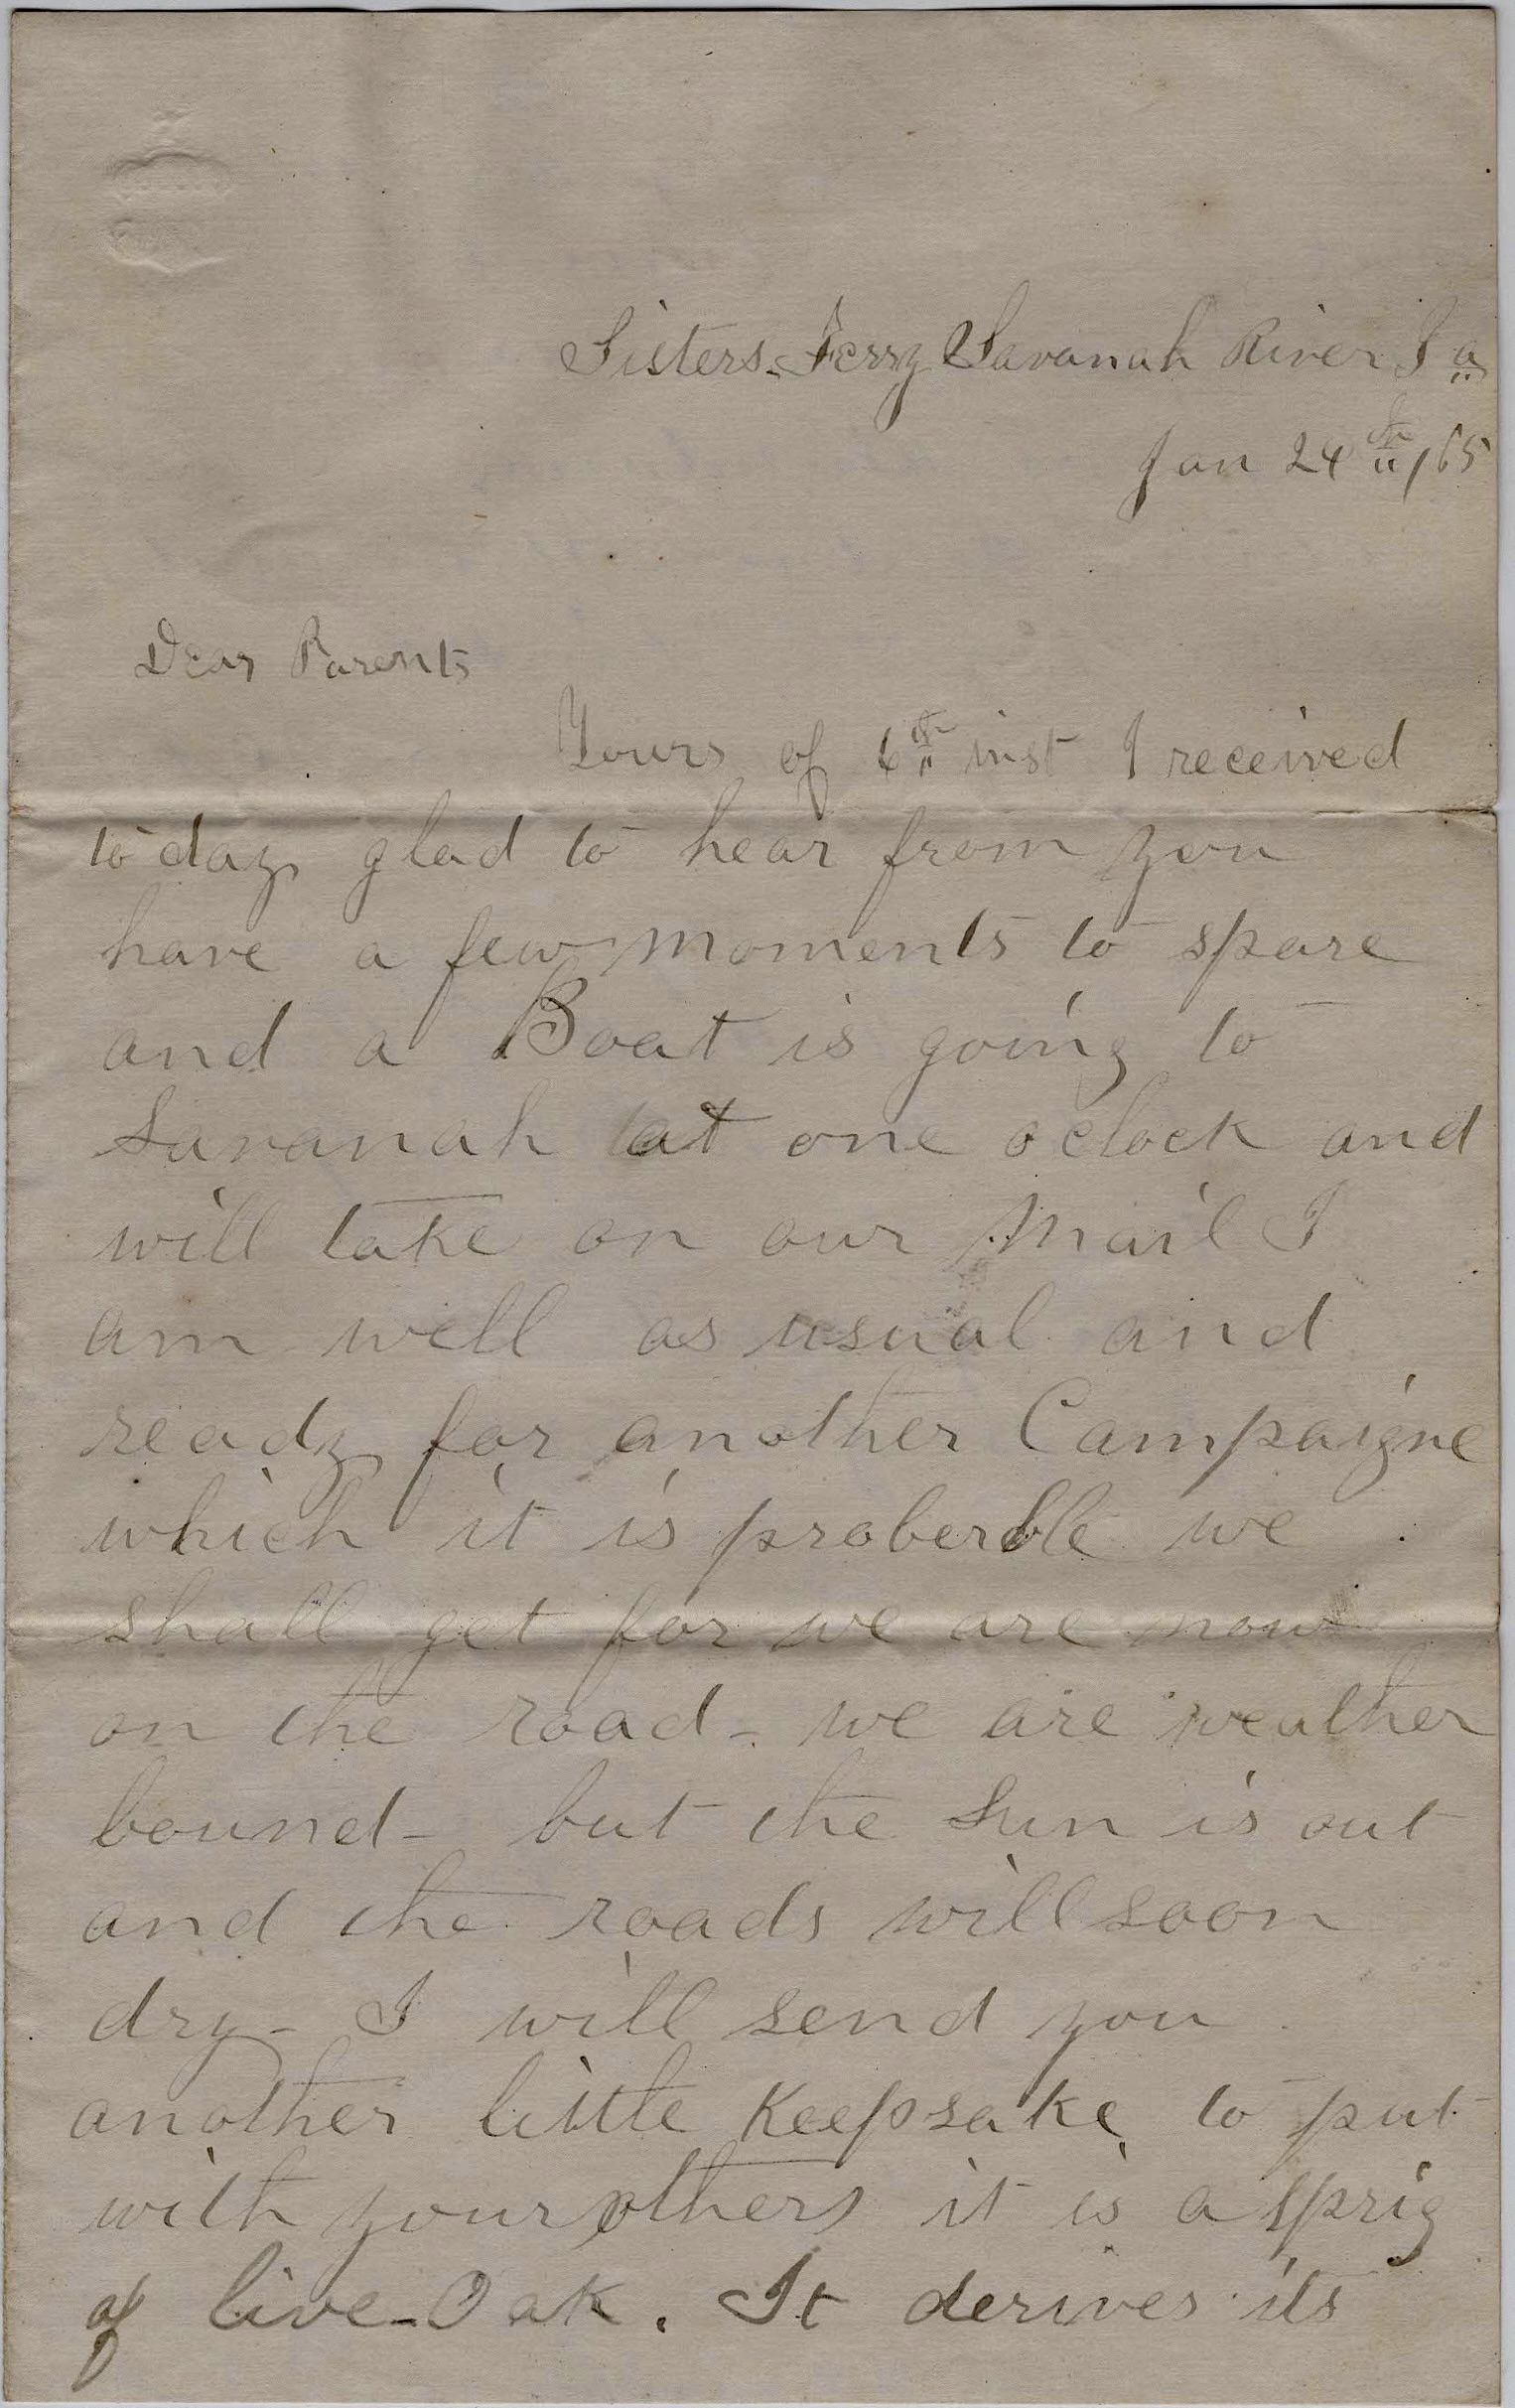 Sisters Ferry Savanah River Ga
Jan 24th /65
Dear Parents
Yours of 6th inst I received
to day glad to hear from you
have a few moments to spare
and a Boat is going to
Savanah at one oclock and
will take on our Mail I
am well as usual and
ready for another Campaigne
which it is proberble we
shall get for we are now
on the road - we are weather
bound - but the Sun is out
and the roads will soon
dry - I will send you
another little Keepsake to put
with your others it is a sprig
of live-Oak. It derives its